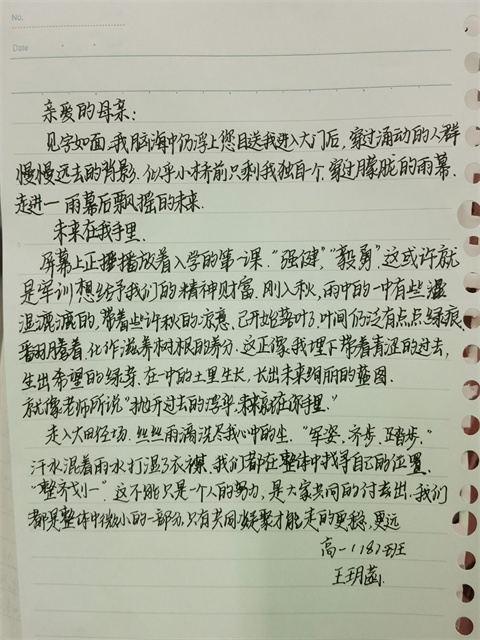 No.
Date
亲爱的母亲：
见字如面.我脑海中仍浮上您目送我进入大门后，穿过涌动的人群
慢慢远去的背影.似乎小桥前只剩我独自一个，穿过朦胧的雨幕.
走进一雨幕后飘摇的未来.
未来在我手里.
屏幕上正播放着入学的第一课."强健"，"毅勇"，这或许就
是军训想给予我们的精神财富.刚入秋，雨中的一中有些湿
湿漉漉的，带着些许秋的凉意.已开始落叶了.叶间仍泛有点点绿痕，
翻腾着，化作滋养树根的养分.这正像我埋下带着青涩的过去，
生出希望的绿芽.在一中的土里生长，长出未来绚丽的蓝图.
就像老师所说"抛开过去的浮华，未来就在你手里."
走入大田径场.丝丝雨滴洗尽我心中的尘."军姿，齐步，正踏步."
汗水混着雨水打湿了衣襟.我们都在整体中找寻自己的位置.
"整齐划一".这不能只是一个人的努力，是大家共同的付出.我们
都是整体中微小的一部分，只有共同凝聚才能走的更稳，更远
高一（18）班
王玥菡